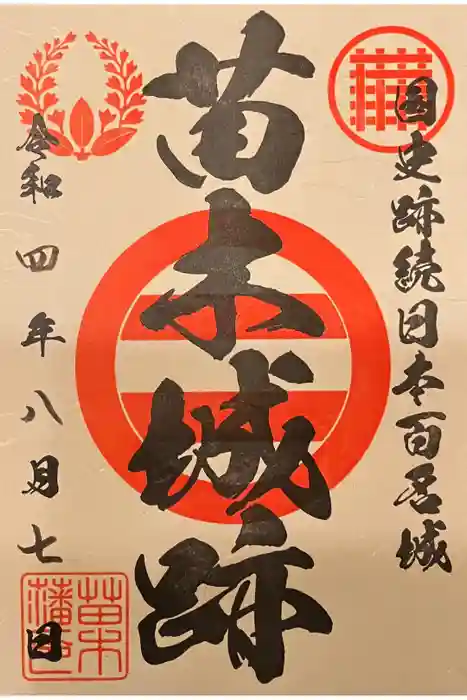 国史跡続日本百名城
苗木城跡
令和四年八月七日
苗木